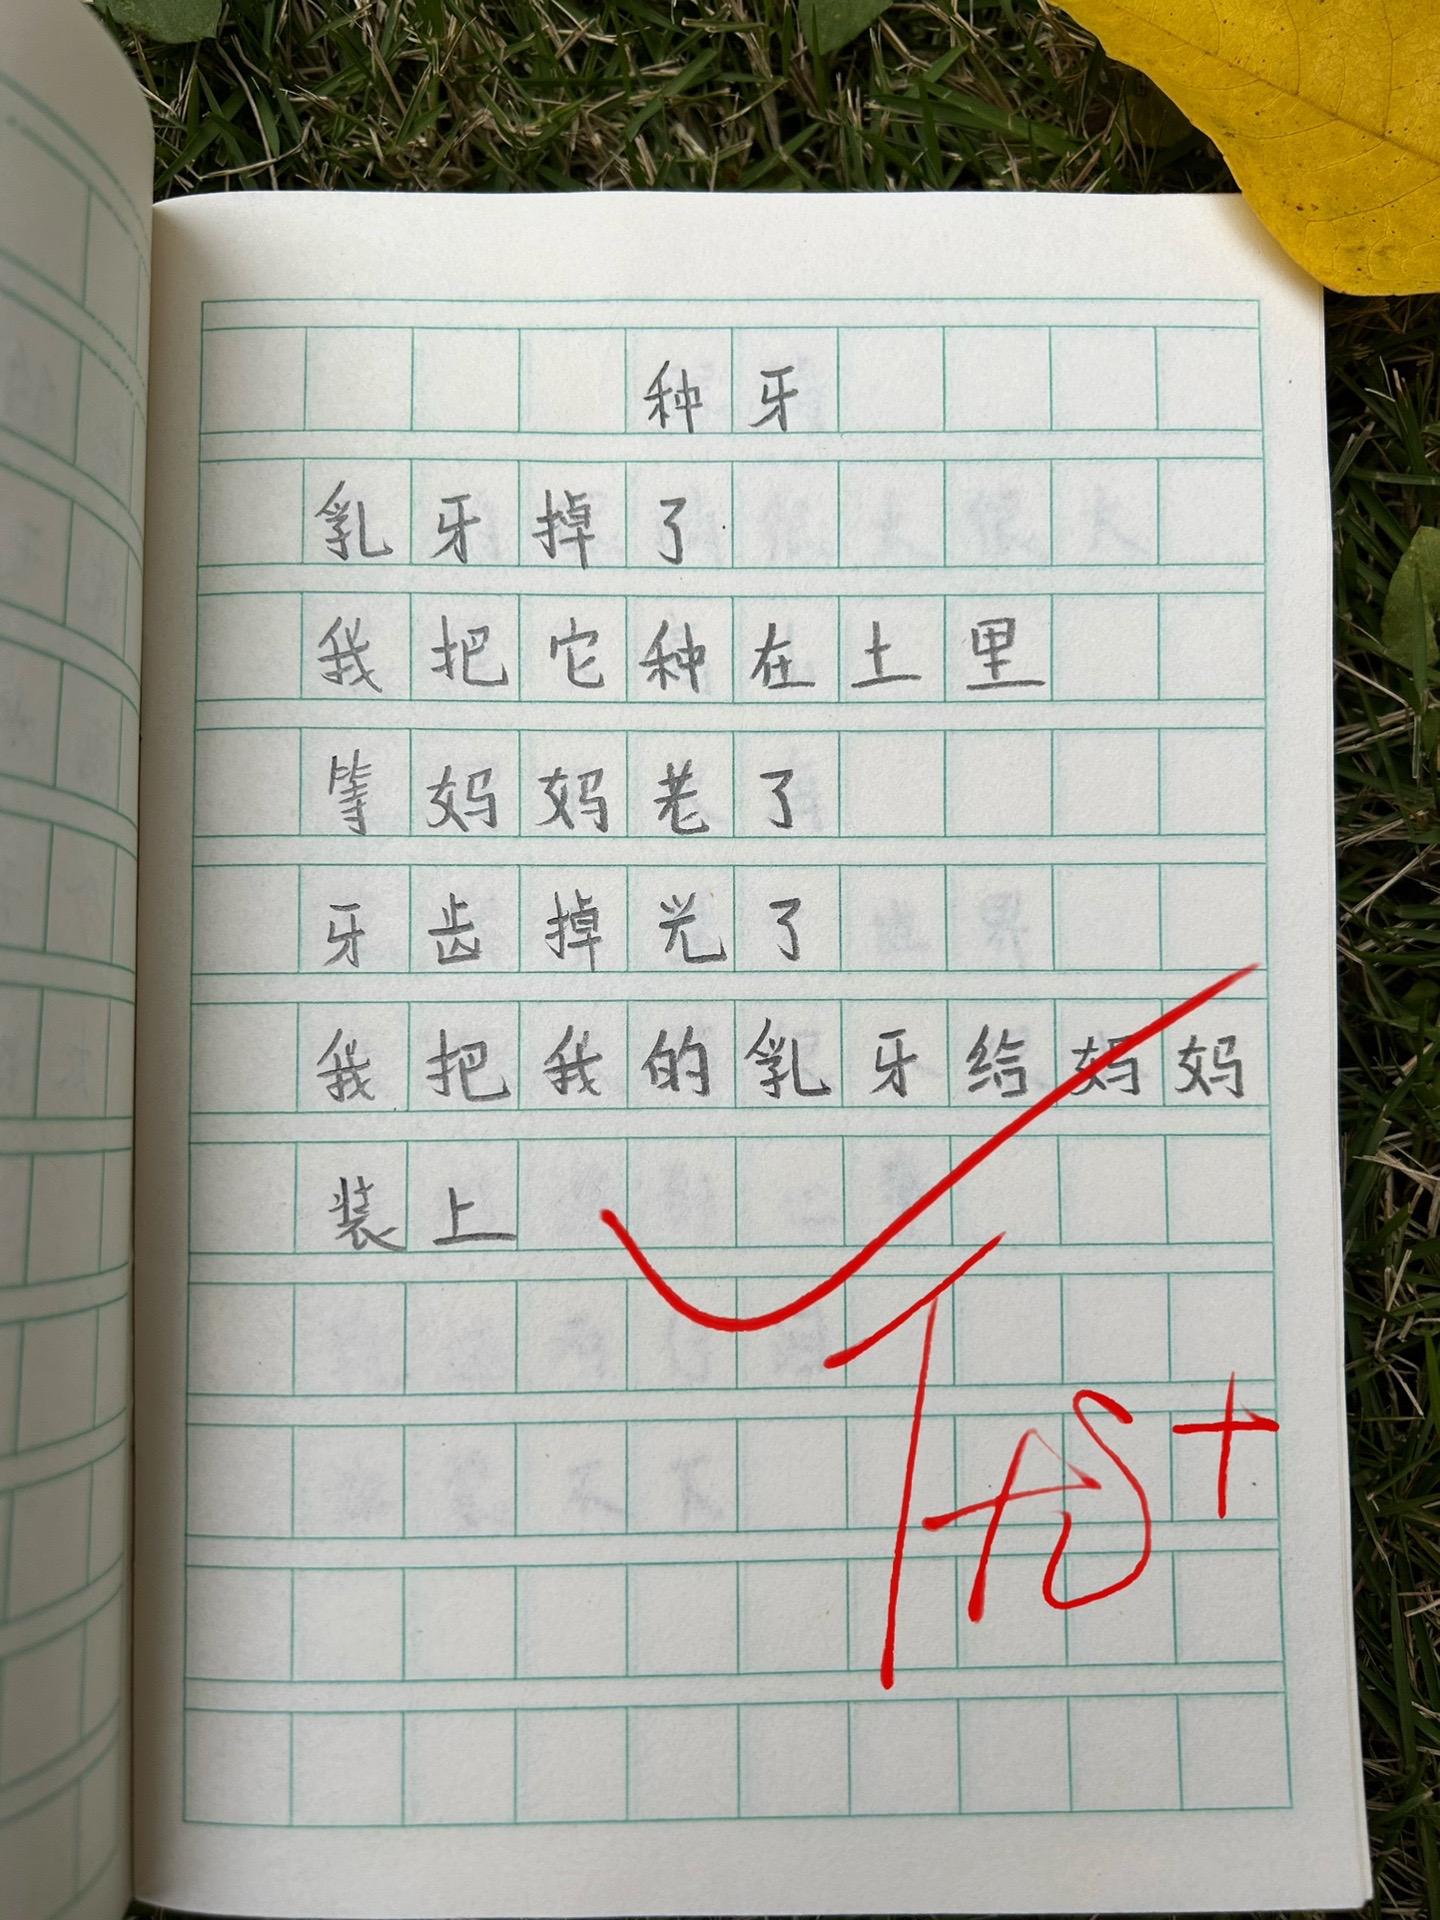 种牙
乳牙掉了
我把它种在土里
等妈妈老了
牙齿掉光了
我把我的乳牙给妈妈
装上